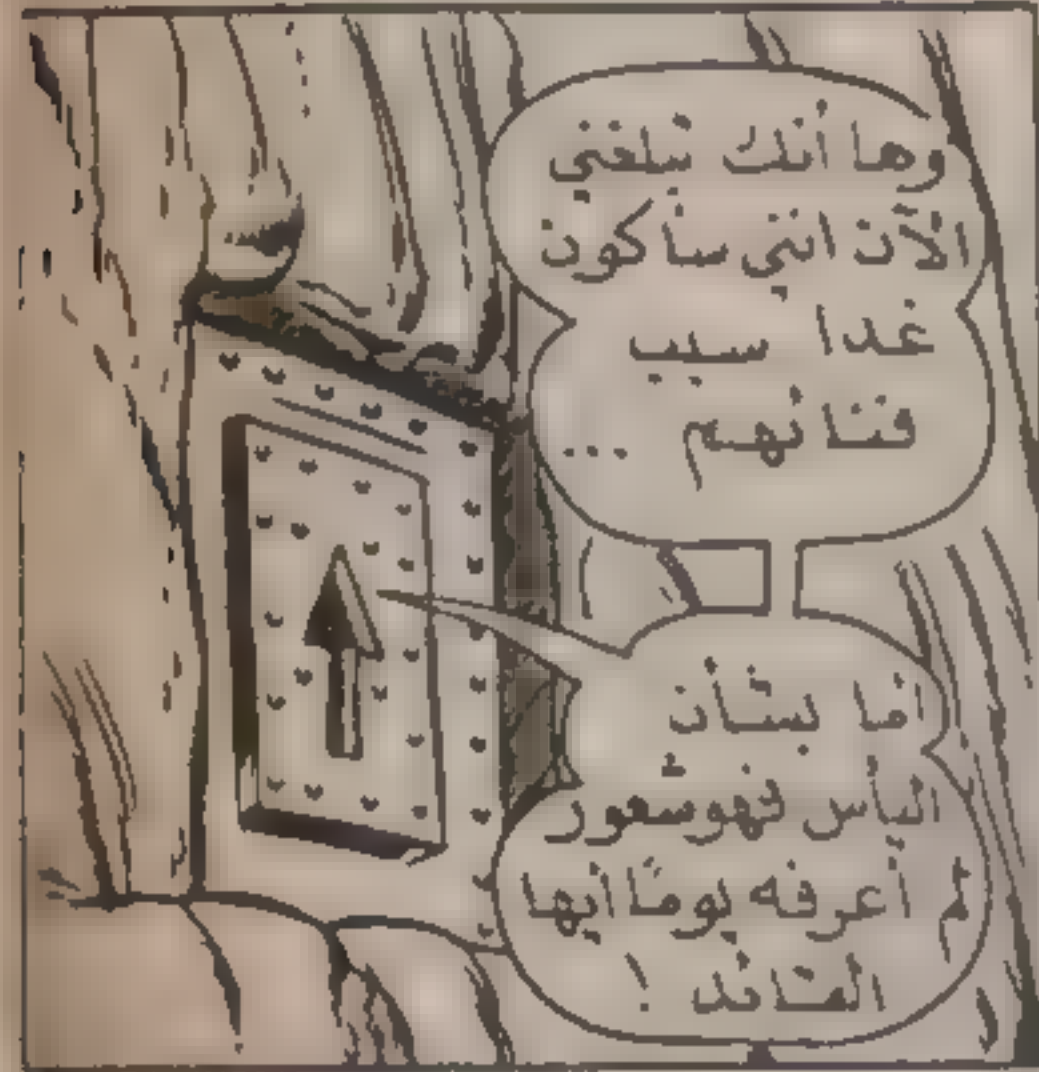 وها أنك تبلغني
الآن انني سأكون
غدا سبب
فنائهم ...
أما بشأن
اليأس فهو شعور
لم أعرفه يومًا أيها
القائد !